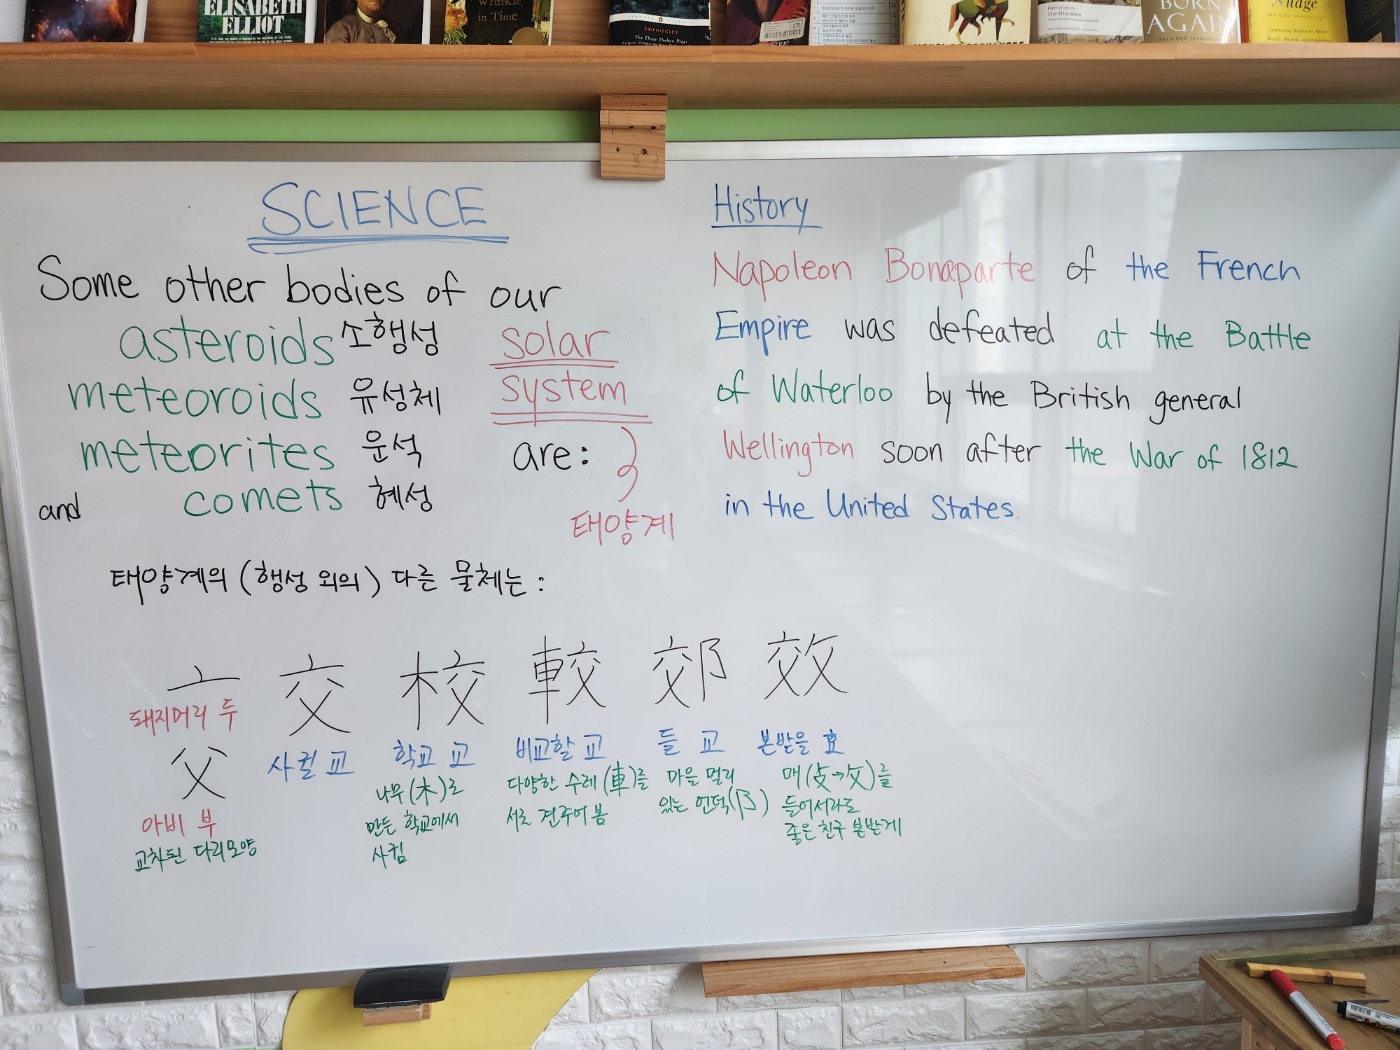 ELISABETH
ELLIOT
Wrinkle
in Time
SOPHOCLES
The Three Theban Plays
Herodotus
The Histories
BORN
AGAIN
Nudge
SCIENCE
Some other bodies of our
asteroids 소행성 solar
meteoroids 유성체 system
meteorites 운석 are:
and comets 혜성
태양계
태양계의 (행성 외의) 다른 물체는:
History
Napoleon Bonaparte of the French
Empire was defeated at the Battle
of Waterloo by the British general
Wellington soon after the War of 1812
in the United States.
亠 交 校 較 郊 效
돼지머리 두
父
아비 부
교차된 다리모양
사귈 교
학교 교
나무(木)로
만든 학교에서
사귐
비교할 교
다양한 수레(車)를
서로 견주어 봄
들 교
마을 멀리
있는 언덕(阝)
본받을 효
매(攴→攵)를
들어서라도
좋은 친구 본받게